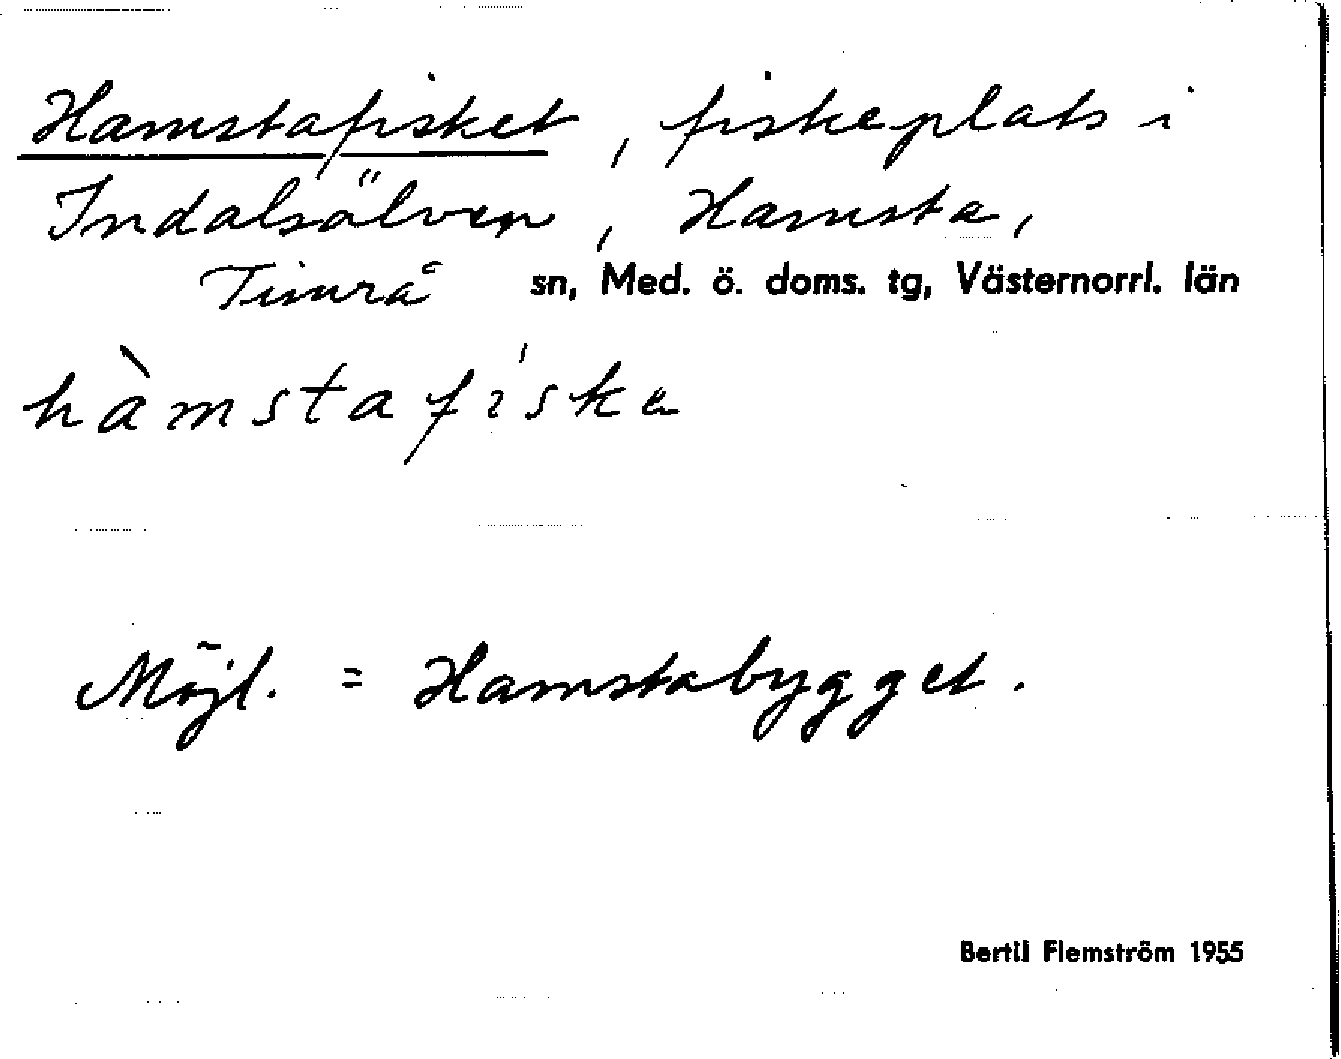 Hamstafisket, fiskeplats i
Indalsälven, Hamsta,
Timrå sn, Med. ö. doms. tg, Västernorrl. län
hàmstafíska
Möjl. = Hamstabygget.
Bertil Flemström 1955